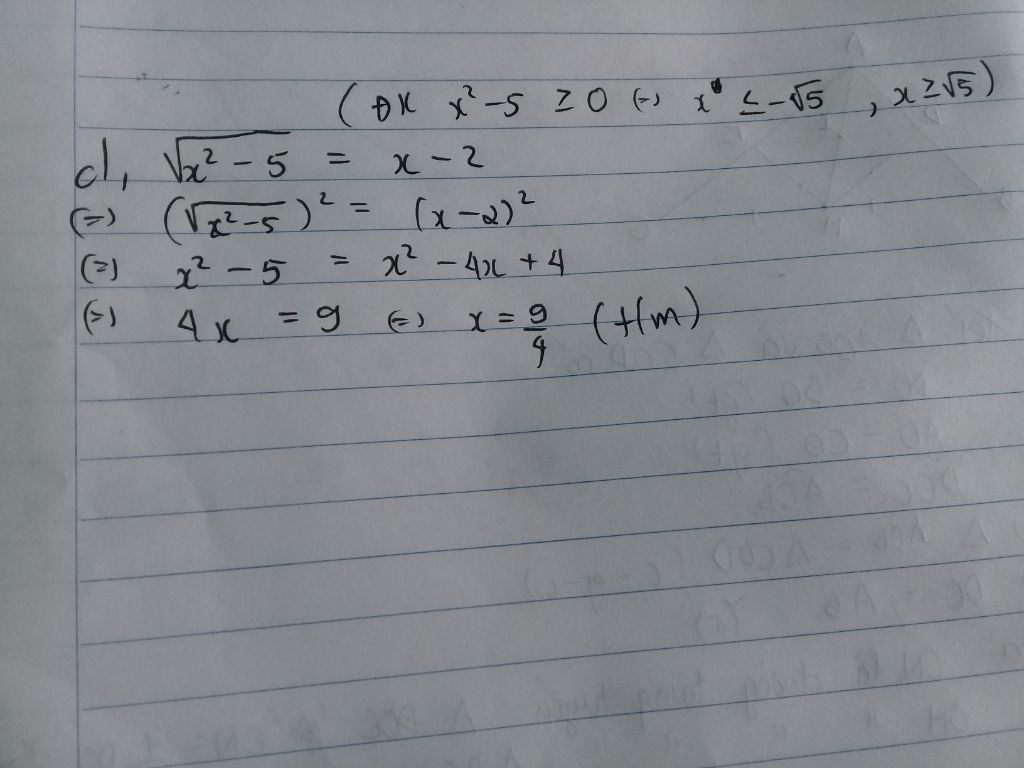 (ĐK x² - 5 ≥ 0 (=) x ≤ -√5 , x ≥ √5)
c), √(x² - 5) = x - 2
(=) (√(x² - 5))² = (x - 2)²
(=) x² - 5 = x² - 4x + 4
(=) 4x = 9 (=) x = 9/4 (t/m)